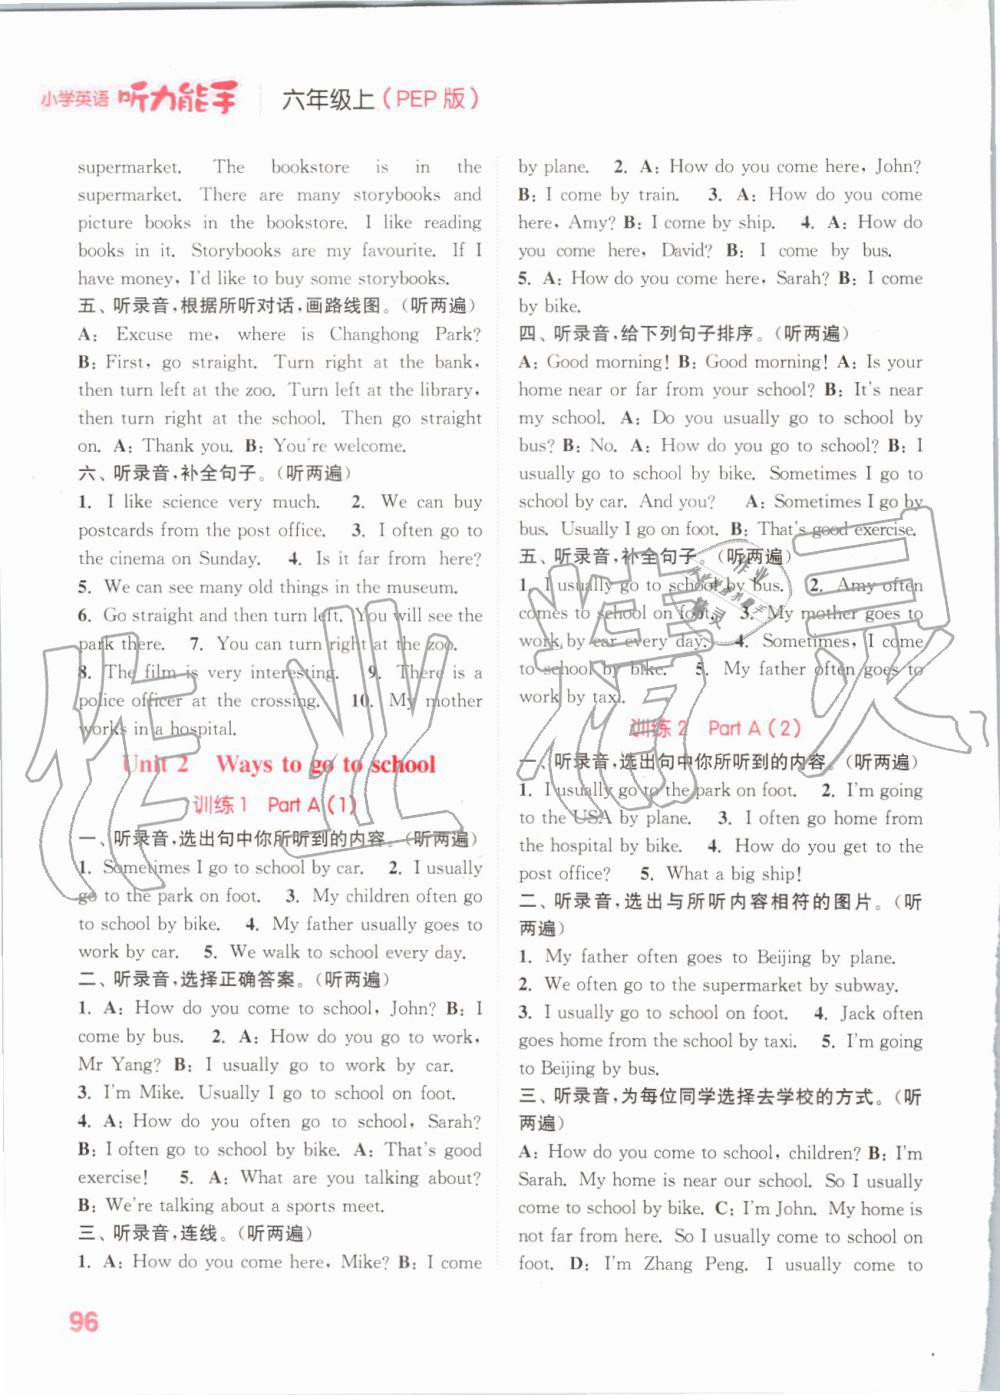 小学英语 听力能手 六年级上(PEP 版)
supermarket. The bookstore is in the
supermarket. There are many storybooks and
picture books in the bookstore. I like reading
books in it. Storybooks are my favourite. If I
have money, I'd like to buy some storybooks.
五、听录音,根据所听对话,画路线图。(听两遍)
A: Excuse me, where is Changhong Park?
B: First, go straight. Turn right at the bank,
then turn left at the zoo. Turn left at the library,
then turn right at the school. Then go straight
on. A: Thank you. B: You're welcome.
六、听录音,补全句子。(听两遍)
1. I like science very much. 2. We can buy
postcards from the post office. 3. I often go to
the cinema on Sunday. 4. Is it far from here?
5. We can see many old things in the museum.
6. Go straight and then turn left. You will see the
park there. 7. You can turn right at the zoo.
8. The film is very interesting. 9. There is a
police officer at the crossing. 10. My mother
works in a hospital.
Unit 2 Ways to go to school
训练1 Part A (1)
一、听录音,选出句中你所听到的内容。(听两遍)
1. Sometimes I go to school by car. 2. I usually
go to the park on foot. 3. My children often go
to school by bike. 4. My father usually goes to
work by car. 5. We walk to school every day.
二、听录音,选择正确答案。(听两遍)
1. A: How do you come to school, John? B: I
come by bus. 2. A: How do you go to work,
Mr Yang? B: I usually go to work by car.
3. I'm Mike. Usually I go to school on foot.
4. A: How do you often go to school, Sarah?
B: I often go to school by bike. A: That's good
exercise! 5. A: What are you talking about?
B: We're talking about a sports meet.
三、听录音,连线。(听两遍)
1. A: How do you come here, Mike? B: I come
by plane. 2. A: How do you come here, John?
B: I come by train. 3. A: How do you come
here, Amy? B: I come by ship. 4. A: How do
you come here, David? B: I come by bus.
5. A: How do you come here, Sarah? B: I come
by bike.
四、听录音,给下列句子排序。(听两遍)
A: Good morning! B: Good morning! A: Is your
home near or far from your school? B: It's near
my school. A: Do you usually go to school by
bus? B: No. A: How do you go to school? B: I
usually go to school by bike. Sometimes I go to
school by car. And you? A: Sometimes I go by
bus. Usually I go on foot. B: That's good exercise.
五、听录音,补全句子。(听两遍)
1. I usually go to school by bus. 2. Amy often
comes to school on foot. 3. My mother goes to
work by car every day. 4. Sometimes, I come
to school by bike. 5. My father often goes to
work by taxi.
训练2 Part A (2)
一、听录音,选出句中你所听到的内容。(听两遍)
1. I usually go to the park on foot. 2. I'm going
to the USA by plane. 3. I often go home from
the hospital by bike. 4. How do you get to the
post office? 5. What a big ship!
二、听录音,选出与所听内容相符的图片。(听
两遍)
1. My father often goes to Beijing by plane.
2. We often go to the supermarket by subway.
3. I usually go to school on foot. 4. Jack often
goes home from the school by taxi. 5. I'm going
to Beijing by bus.
三、听录音,为每位同学选择去学校的方式。(听
两遍)
A: How do you come to school, children? B: I'm
Sarah. My home is near our school. So I usually
come to school by bike. C: I'm John. My home is
not far from here. So I usually come to school on
foot. D: I'm Zhang Peng. I usually come to
96
作业精灵